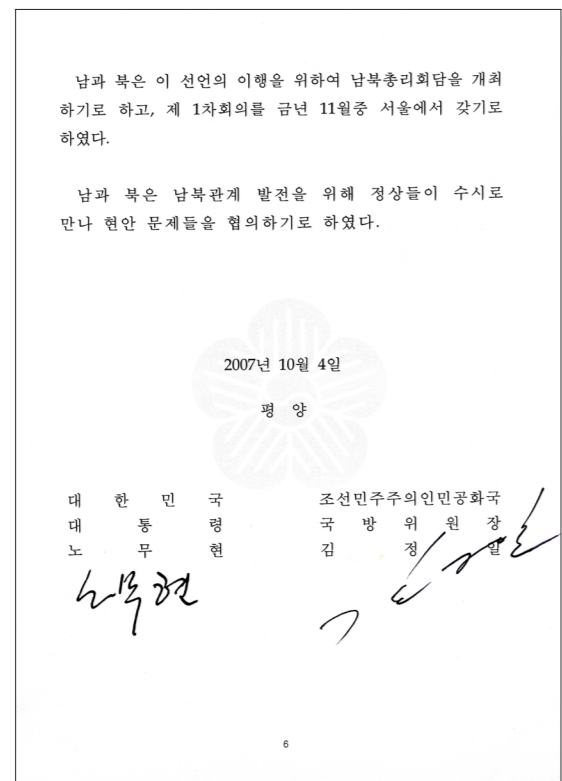 남과 북은 이 선언의 이행을 위하여 남북총리회담을 개최
하기로 하고, 제 1차회의를 금년 11월중 서울에서 갖기로
하였다.
남과 북은 남북관계 발전을 위해 정상들이 수시로
만나 현안 문제들을 협의하기로 하였다.
2007년 10월 4일
평 양
대 한 민 국
대 통 령
노 무 현
노무현
조선민주주의인민공화국
국 방 위 원 장
김 정 일
김정일
6